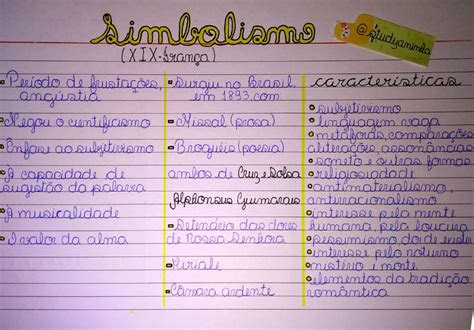 Simbolismo
(XIX-França)
@studyaninha
Período de frustações,
angústia
Negou o cientificismo
Enfase ao subjetivismo
A capacidade de
sugestão da palavra
A musicalidade
O valor da alma
Surgiu no Brasil
em 1893 com
Missal (prosa)
Broquéis (poesia)
ambos de Cruz e Sousa
Alphonsus Guimaraes
Setenário das dores
de Nossa Senhora
Kiriale
Câmara ardente
características
subjetivismo
linguagem vaga
metáforas, comparações
aliterações, assonâncias
soneto e outras formas
religiosidade
antimaterialismo,
antirracionalismo
interesse pela mente
humana, pela loucura
pessimismo dor de existir
interesse pelo noturno
mistério e morte
elementos da tradição
romântica